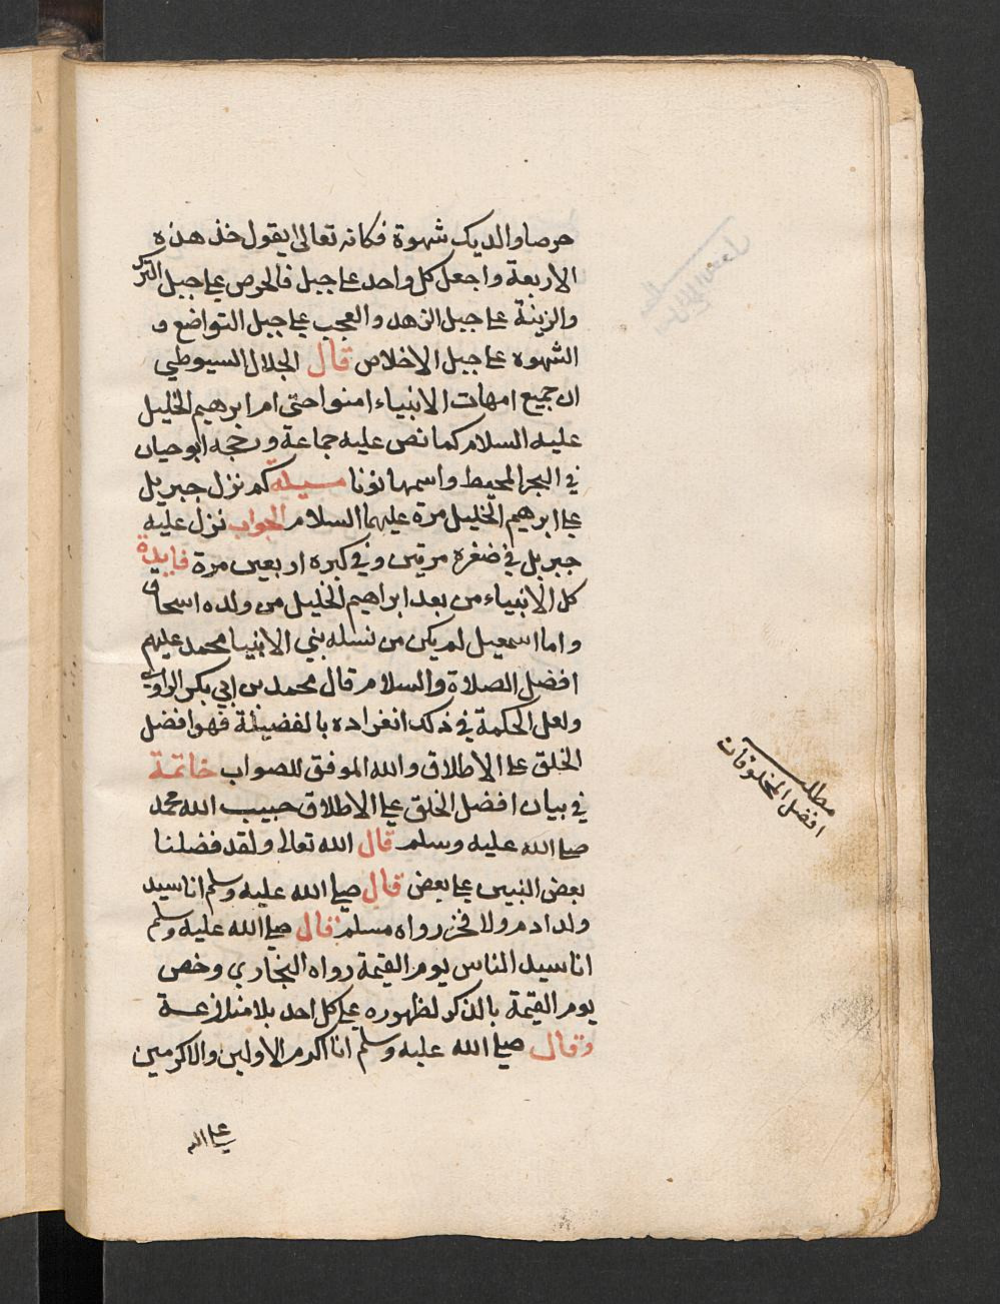 حرصا والديك شهوة فكانه تعالى يقول خذ هذه
الاربعة واجعل كل واحد على جبل فالحرص على جبل الترك
والزينة على جبل الزهد والعجب على جبل التواضع و
الشهوه على جبل الاخلاص قال الجلال السيوطي
ان جميع امهات الانبياء امنوا حتى ام ابرهيم الخليل
عليه السلام كما نص عليه جماعة ورجحه ابو حيان
في البحر المحيط واسمها نونا مسيلة كم نزل جبريل
على ابرهيم الخليل مرة عليهما السلام الجواب نزل عليه
جبريل في ضغره مرتين وفي كبره اربعين مرة فايدة
كل الانبياء من بعد ابراهيم الخليل من ولده اسحاق
واما اسمعيل لم يكن من نسله بني الا نبينا محمد عليهم
افضل الصلاة والسلام قال محمد بن ابي بكر الرازي
ولعل الحكمة في ذلك انفراده بالفضيلة فهو افضل
الخلق على الاطلاق والله الموفق للصواب خاتمة
في بيان افضل الخلق على الاطلاق حبيب الله محمد
صلى الله عليه وسلم قال الله تعالى ولقد فضلنا
بعض النبيين على بعض قال صلى الله عليه وسلم انا سيد
ولد ادم ولا فخر رواه مسلم قال صلى الله عليه وسلم
انا سيد الناس يوم القيمة رواه البخاري وخص
يوم القيمة بالذكر لظهوره على كل احد بلا منازعة
وقال صلى الله عليه وسلم انا اكرم الاولين والاكرمين
على الله
مطلب
افضل المخلوقات